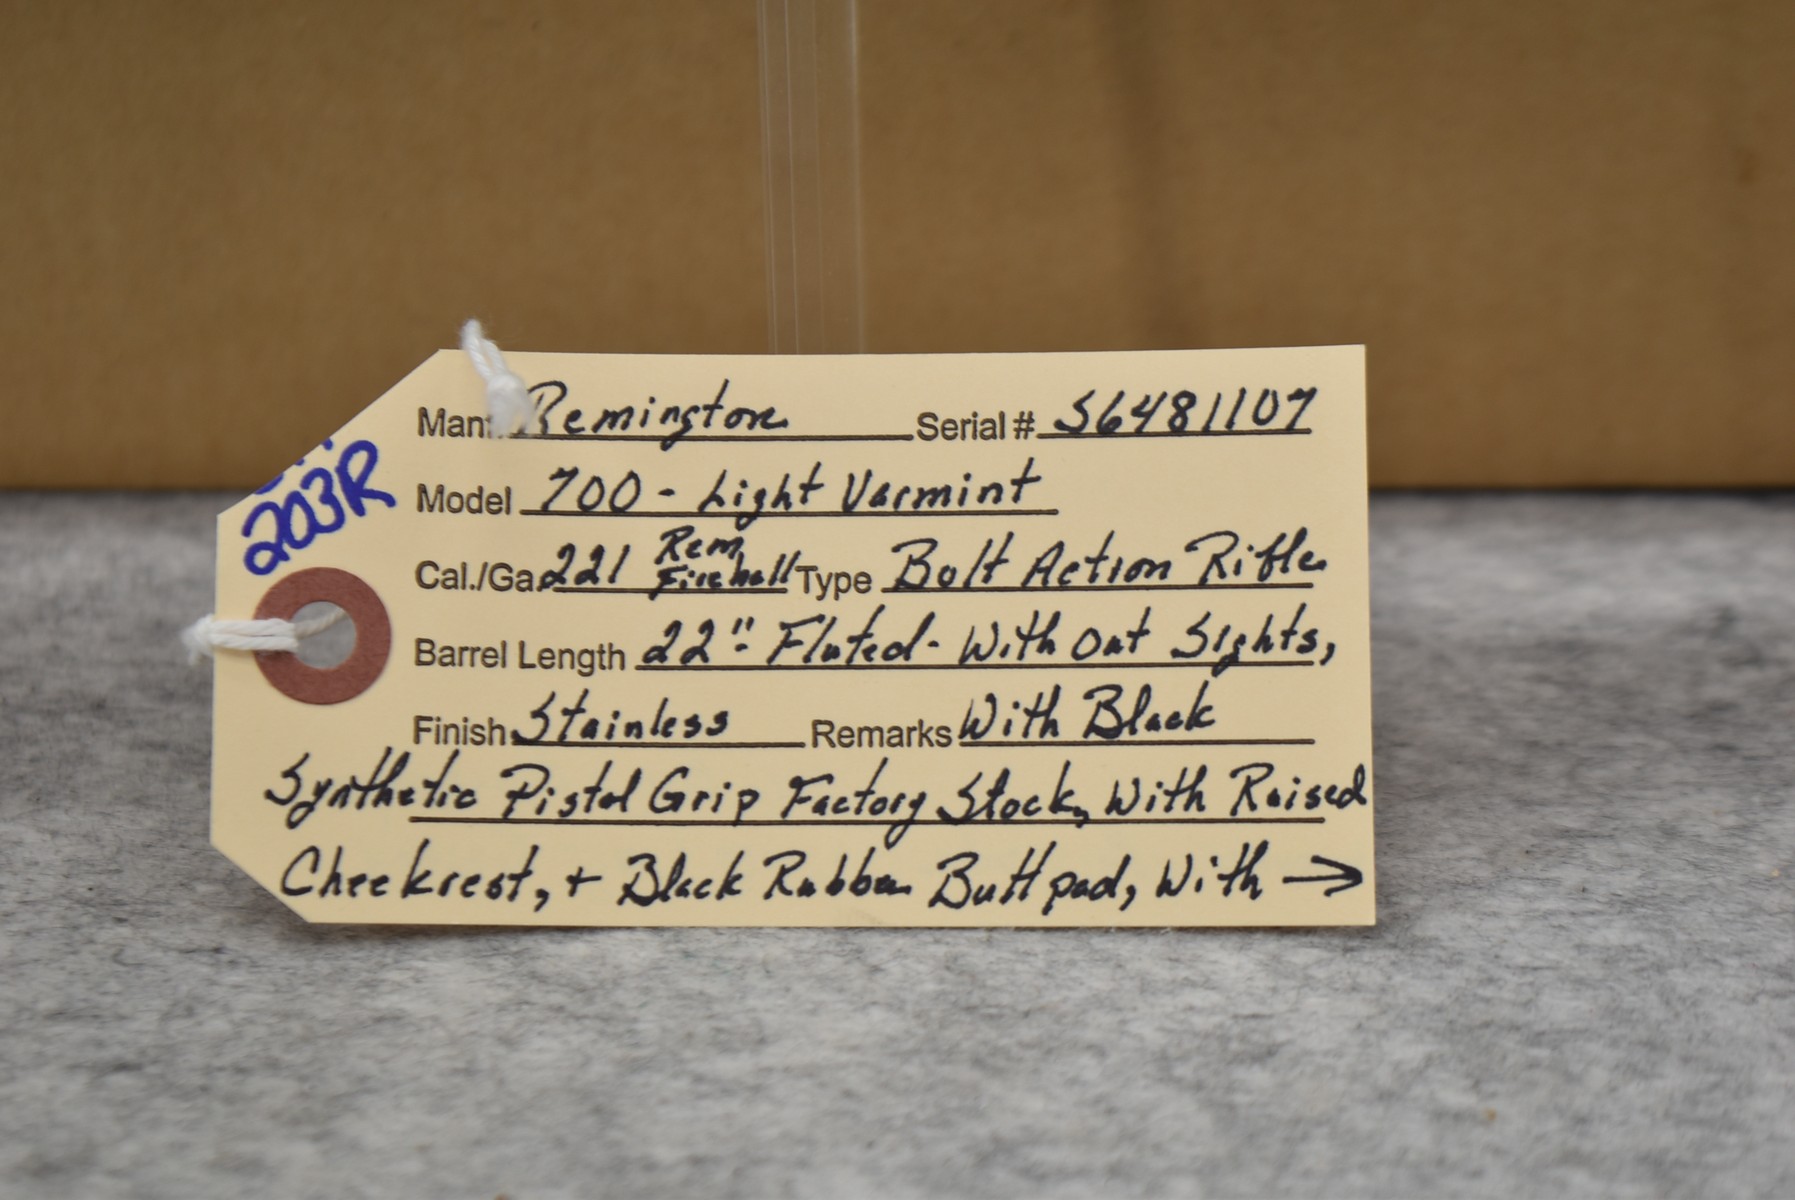 203R
Manf. Remington Serial # S6481107
Model 700 - Light Varmint
Cal./Ga. 221 Rem Fireball Type Bolt Action Rifle
Barrel Length 22" Fluted - With out Sights,
Finish Stainless Remarks With Black
Synthetic Pistol Grip Factory Stock, With Raised
Cheekrest, + Black Rubber Butt pad, With →